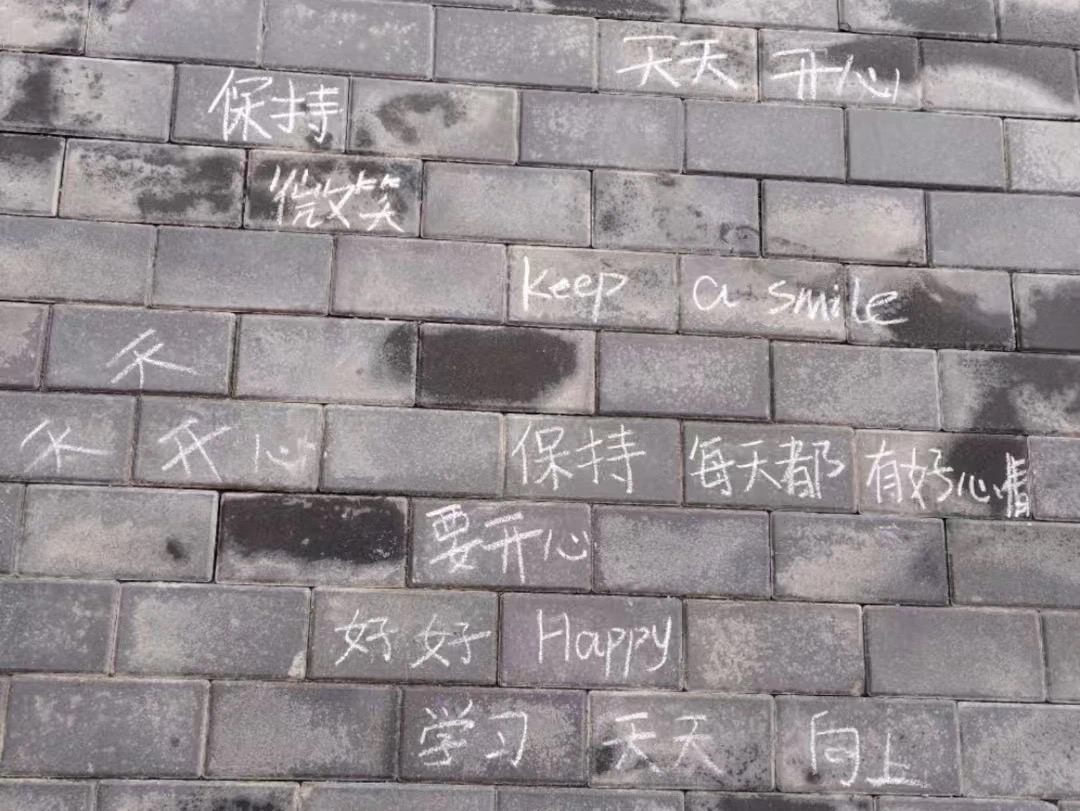 天天 开心
保持
微笑
keep a smile
不
不 开心 保持 每天都 有好心情
要开心
好好 Happy
学习 天天 向上